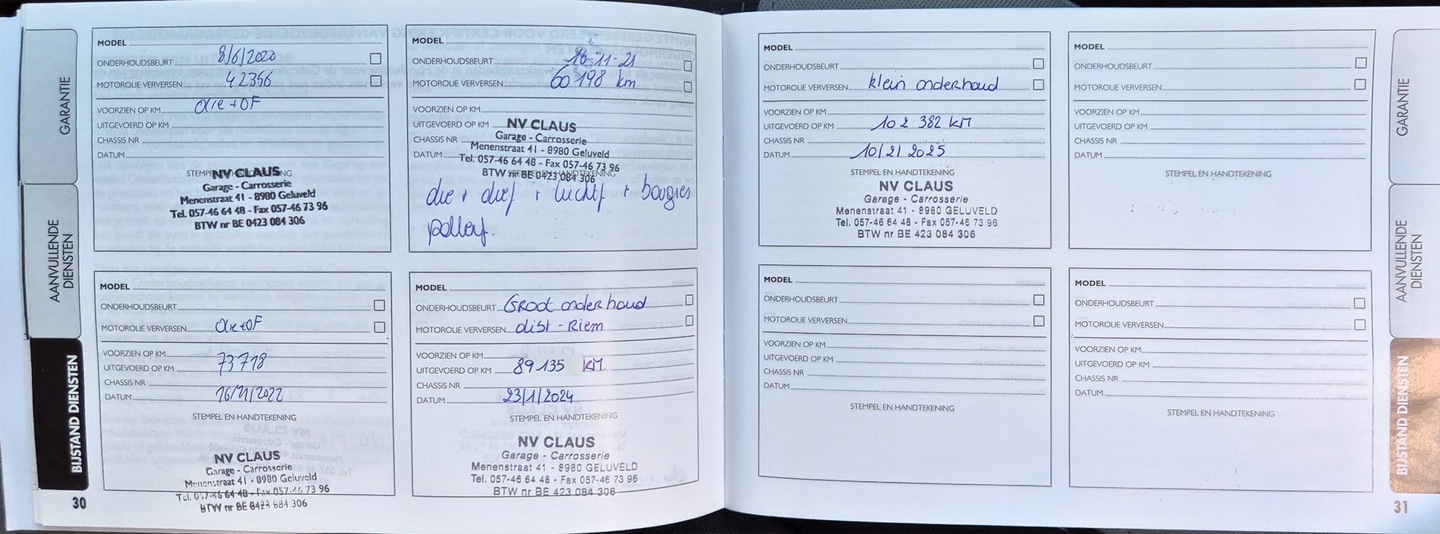 GARANTIE
AANVULLENDE
DIENSTEN
BIJSTAND DIENSTEN
30
MODEL
8/6/2020
ONDERHOUDSBEURT
MOTOROLIE VERVERSEN 42356
VOORZIEN OP KM olie+OF
UITGEVOERD OP KM
CHASSIS NR
DATUM
STEMPEL
NV CLAUS
Garage - Carrosserie
Menenstraat 41 - 8980 Geluveld
Tel. 057-46 64 48 - Fax 057-46 73 96
BTW nr BE 0423 084 306
MODEL
ONDERHOUDSBEURT 16-11-21
MOTOROLIE VERVERSEN 60 198 km
VOORZIEN OP KM
UITGEVOERD OP KM
CHASSIS NR
DATUM
NV CLAUS
Garage - Carrosserie
Menenstraat 41 - 8980 Geluveld
Tel. 057-46 64 48 - Fax 057-46 73 96
BTW nr BE 0423 084 306
olie + olief + luchtf + bougies
pollenf.
MODEL
ONDERHOUDSBEURT
MOTOROLIE VERVERSEN olie+OF
VOORZIEN OP KM
UITGEVOERD OP KM 73718
CHASSIS NR
DATUM 16/11/2022
STEMPEL EN HANDTEKENING
NV CLAUS
Garage - Carrosserie
Menenstraat 41 - 8980 Geluveld
Tel. 057-46 64 48 - Fax 057-46 73 96
BTW nr BE 0423 084 306
MODEL
ONDERHOUDSBEURT Groot onderhoud
MOTOROLIE VERVERSEN dist - Riem
VOORZIEN OP KM
UITGEVOERD OP KM 89 135 KM
CHASSIS NR
DATUM 23/1/2024
STEMPEL EN HANDTEKENING
NV CLAUS
Garage - Carrosserie
Menenstraat 41 - 8980 GELUVELD
Tel. 057-46 64 48 - Fax 057-46 73 96
BTW nr BE 423 084 306
MODEL
ONDERHOUDSBEURT
MOTOROLIE VERVERSEN klein onderhoud
VOORZIEN OP KM
UITGEVOERD OP KM 102 382 KM
CHASSIS NR
DATUM 10/2/2025
STEMPEL EN HANDTEKENING
NV CLAUS
Garage - Carrosserie
Menenstraat 41 - 8980 GELUVELD
Tel. 057-46 64 48 - Fax 057-46 73 96
BTW nr BE 423 084 306
MODEL
ONDERHOUDSBEURT
MOTOROLIE VERVERSEN
VOORZIEN OP KM
UITGEVOERD OP KM
CHASSIS NR
DATUM
STEMPEL EN HANDTEKENING
MODEL
ONDERHOUDSBEURT
MOTOROLIE VERVERSEN
VOORZIEN OP KM
UITGEVOERD OP KM
CHASSIS NR
DATUM
STEMPEL EN HANDTEKENING
MODEL
ONDERHOUDSBEURT
MOTOROLIE VERVERSEN
VOORZIEN OP KM
UITGEVOERD OP KM
CHASSIS NR
DATUM
STEMPEL EN HANDTEKENING
GARANTIE
AANVULLENDE
DIENSTEN
BIJSTAND DIENSTEN
31